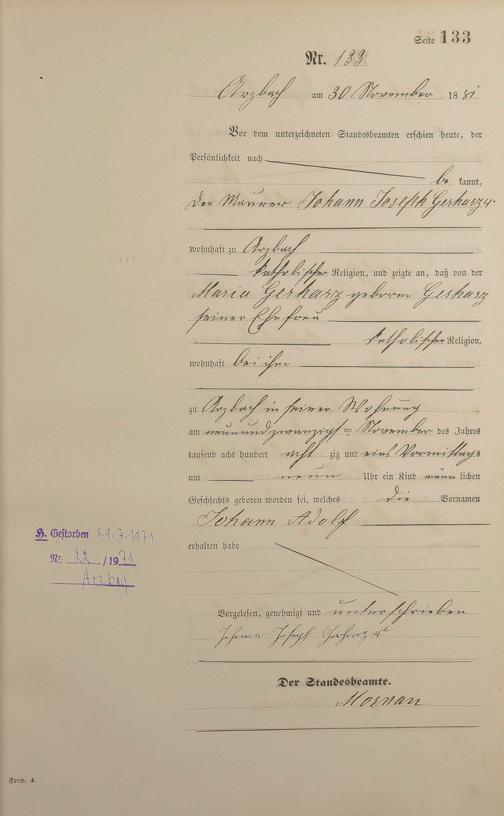 Seite 133
Nr. 133
Arzbach am 30 November 1881
Vor dem unterzeichneten Standesbeamten erschien heute, der
Persönlichkeit nach
be kannt,
der Maurer Johann Joseph Gerharz 4r
wohnhaft zu Arzbach
katholischer Religion, und zeigte an, daß von der
Maria Gerharz geborene Gerharz
seiner Ehefrau
katholischer Religion,
wohnhaft bei ihm
zu Arzbach in seiner Wohnung
am neunundzwanzigsten November des Jahres
tausend acht hundert acht zig und eins Vormittags
um neun Uhr ein Kind männlichen
Geschlechts geboren worden sei, welches die Vornamen
Johann Adolf
erhalten habe
H. Gestorben 29.7.1971
Nr. 22 / 1971
Arzbach
Vorgelesen, genehmigt und unterschrieben
Johann Joseph Gerharz 4r
Der Standesbeamte.
Form. A.